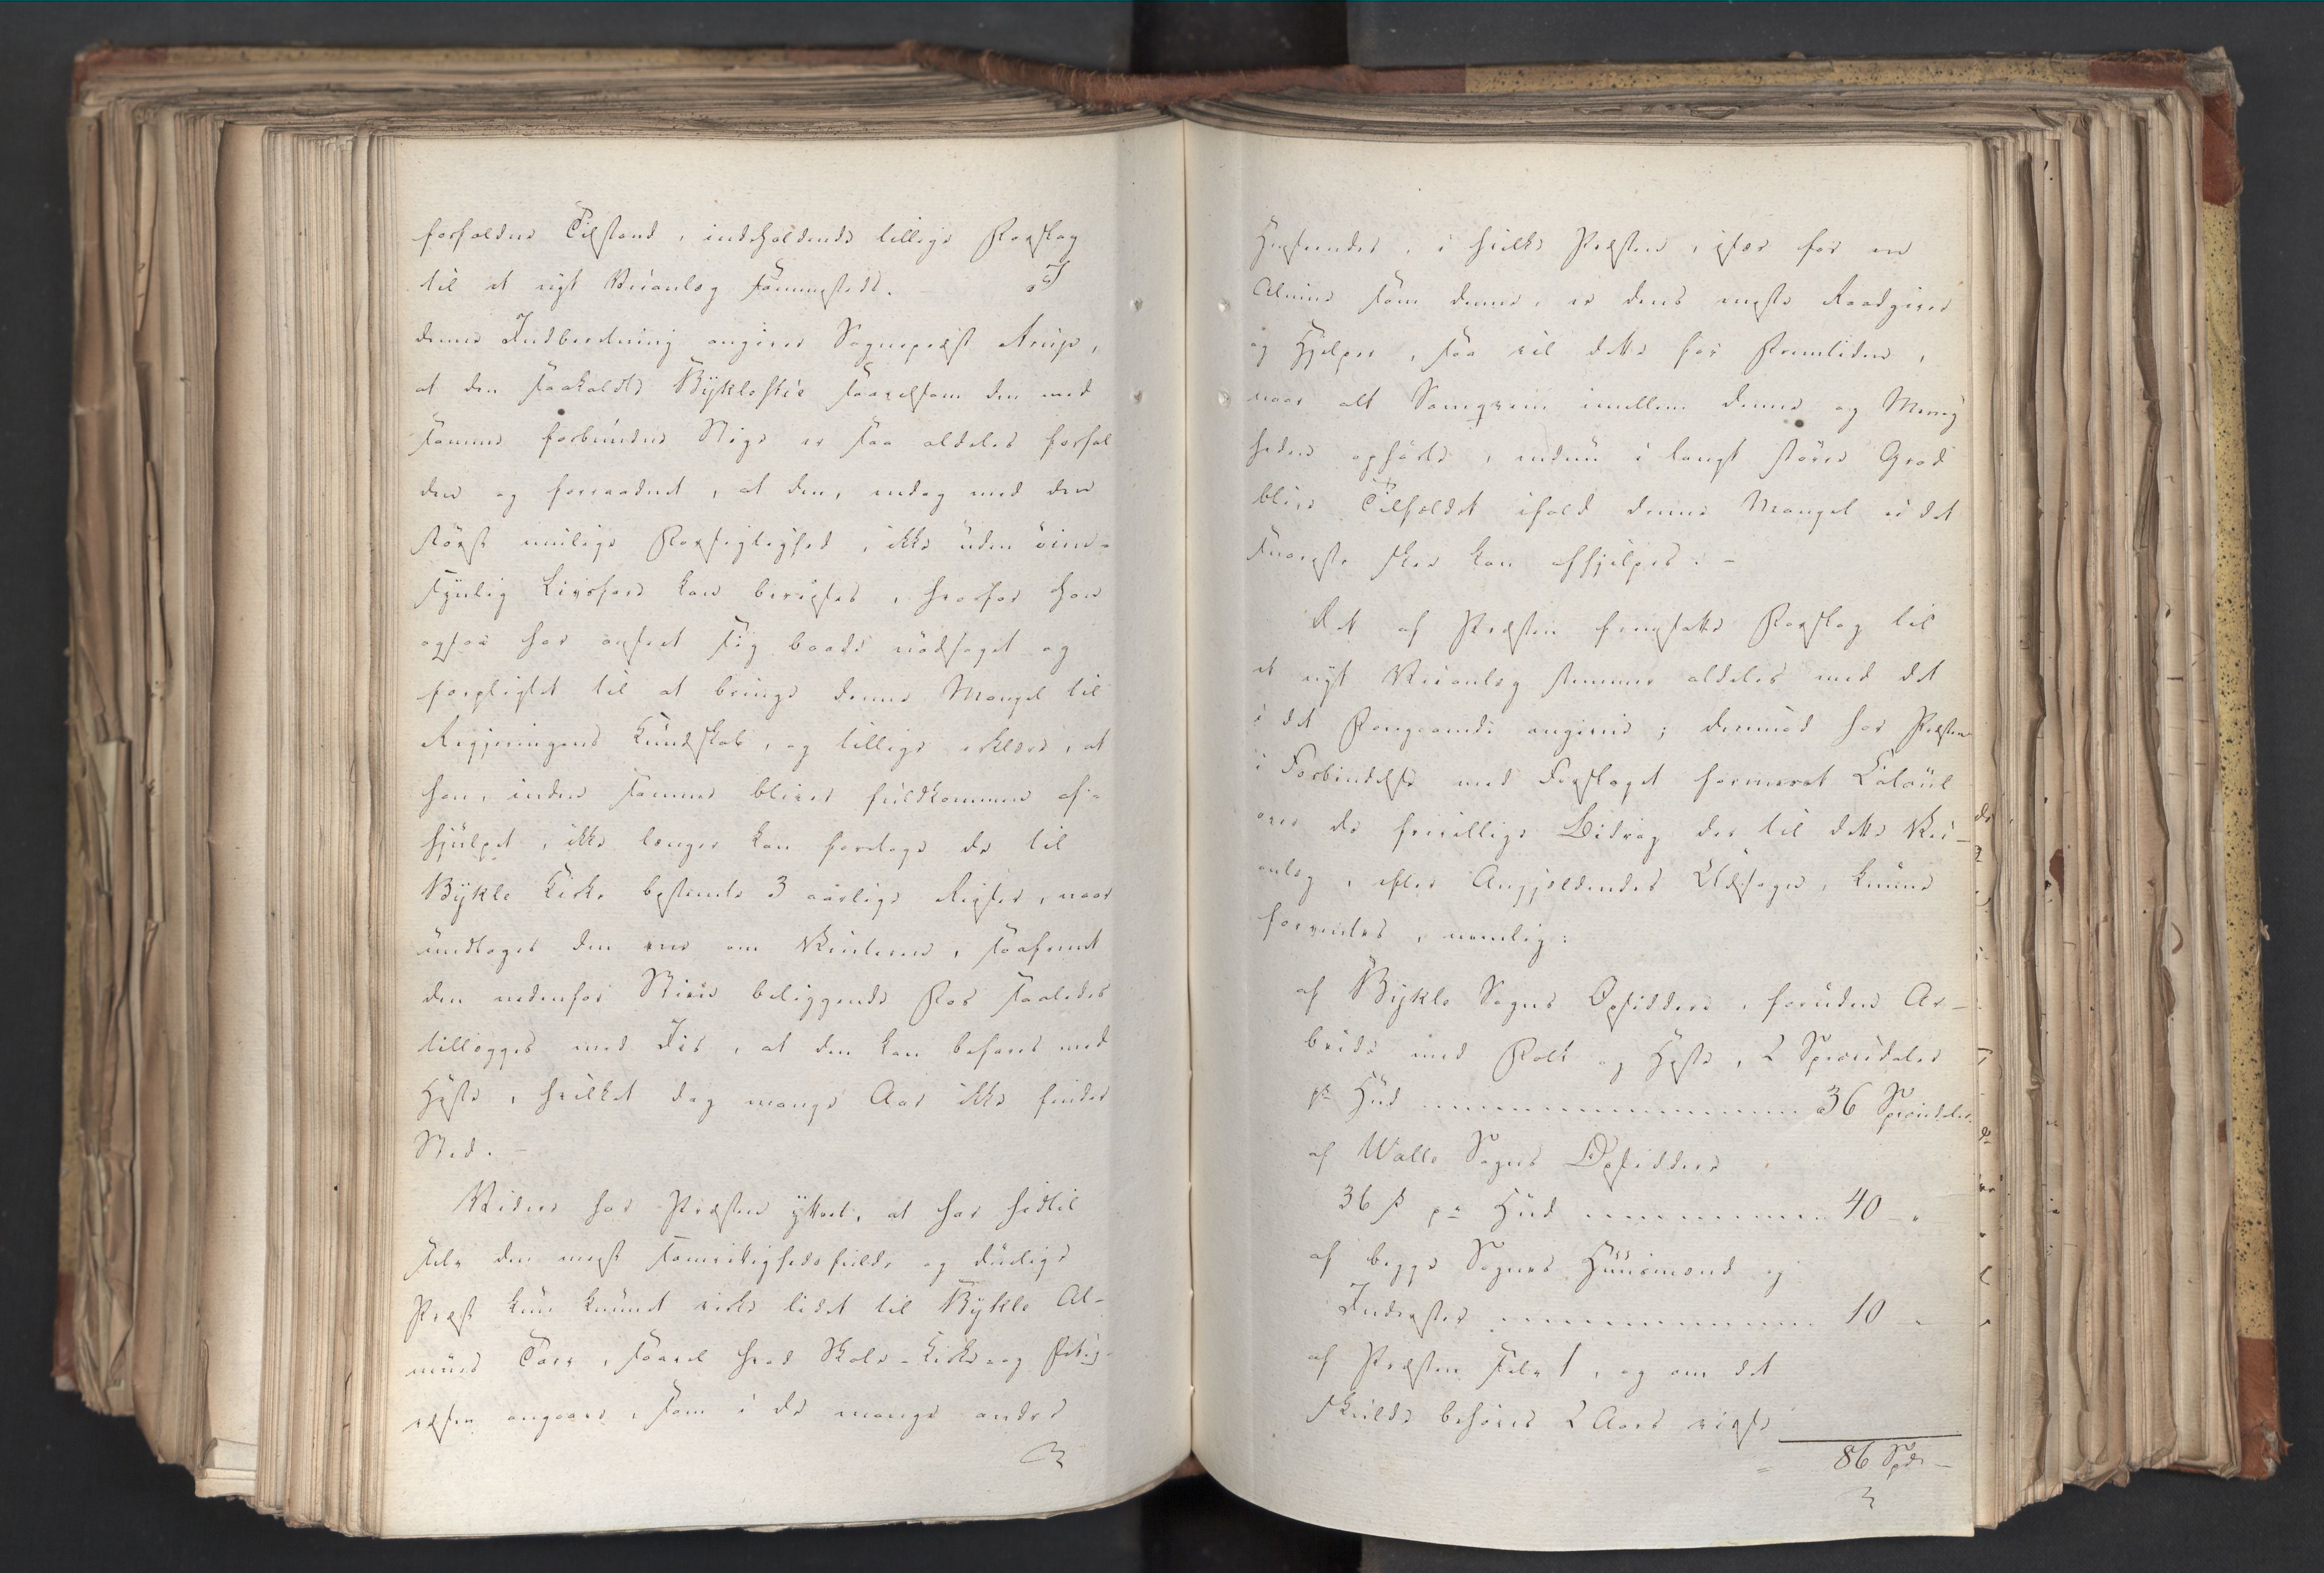 forfaldne Tilstand, indeholdende tillige Forslag
til et nyt Veianlæg sammesteds. I
denne Indberetning angiver Sognepræst Arup,
at den saakaldte Byklestie saavelsom den med
samme forbundne Stige er saa aldeles forfal
den og forraadnet, at den, endog med den
størst muelige Forsigtighed, ikke uden øien-
synlig Livsfare kan bereises, hvorfor han
ogsaa har anseet sig baade nødsaget og
forpligtet til at bringe denne Mangel til
Regjeringens Kundskab, og tillige erklære, at
han, inden samme bliver fuldkommen af-
hjulpet, ikke længer kan foretage de til
Bykle Kirke bestemte 3 aarlige Reiser, naar
undtages den ene om Vinteren, saafremt
den nedenfor Stien beliggende Fos saaledes
tillægges med Iis, at den kan befares med
Heste, hvilket dog mange Aar ikke finder
Sted. -
Videre har Præsten yttret, at har hidtil
selv den mest samvittighedsfulde og duelige
Præst kun kunnet virke lidet til Bykle Al-
mues Tarv, saavel hvad Skole- Kirke- og Fattig-
væsen angaaer, som i de mange andre
Henseender, i hvilke Præsten, især for en
Almue som denne, er dens meste Raadgiver
og Hjelper, saa vil dette for Fremtiden,
naar alt Samqvem imellem denne og Menig
heden ophørte, endnu i langt større Grad
blive Tilfældet ifald denne Mangel ei det
snareste skee kan afhjelpes. -
Det af Præsten fremsatte Forslag til
et nyt Veianlæg stemmer aldeles med det
i det Foregaaende angivne; derimod har Præsten
i Forbindelse med Forslaget formeret Calcul
over de frivillige Bidrag der til dette Vei-
anlæg, efter Angjældendes Udsagn, kunne
forventes, nemlig:
af Bykle Sogns Opsiddere, foruden Ar-
beide med Folk og Heste, 2 Speciedaler
pr Hud ........ 36 Speciedaler
af Walle Sogns Opsiddere
36 ß pr Hud ........ 40 - "
af begge Sognes Huusmænd og
Inderster ........ 10 - "
af Præsten selv 1, og om det
skulde behøves 2 Aars reise
86 Spdr -